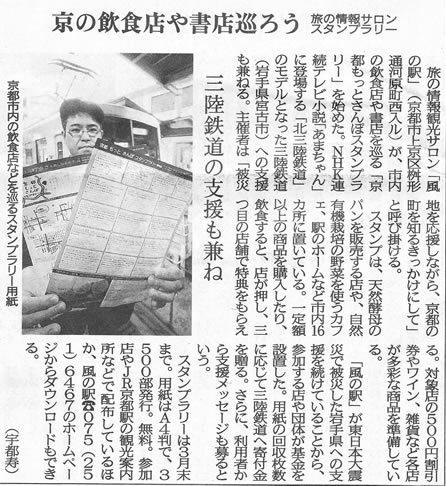 京の飲食店や書店巡ろう
旅の情報サロン
スタンプラリー
旅の情報観光サロン「風
の駅」（京都市上京区桝形
通河原町西入ル）が、市内
の飲食店や書店を巡る「京
都もっとさんぽスタンプラ
リー」を始めた。ＮＨＫ連
続テレビ小説「あまちゃん」
に登場する「北三陸鉄道」
のモデルとなった三陸鉄道
（岩手県宮古市）への支援
も兼ねる。主催者は「被災
三陸鉄道の支援も兼ね
京都市内の飲食店などを巡るスタンプラリー用紙
地を応援しながら、京都の
町を知るきっかけにして」
と呼び掛ける。
スタンプは、天然酵母の
パンを販売する店や、自然
有機栽培の野菜を使うカフ
ェ、駅のホームなど市内16
カ所に置いている。一定額
以上の商品を購入したり、
飲食すると、店が押し、三
つ目の店舗で、特典をもらえ
る。対象店の500円割引
券やワイン、雑貨など各店
が多彩な商品を準備してい
る。
「風の駅」が東日本大震
災で被災した岩手県への支
援を続けていることから、
参加する店や団体が基金を
設置した。用紙の回収枚数
に応じて三陸鉄道へ寄付金
を贈る。さらに、利用者か
ら支援メッセージも募ると
いう。
スタンプラリーは3月末
まで。用紙はA4判で、3
500部発行。無料。参加
店やJR京都駅の観光案内
所などで配布しているほ
か、風の駅☎075（25
1）6467のホームペー
ジからダウンロードもでき
る。
（宇都寿）